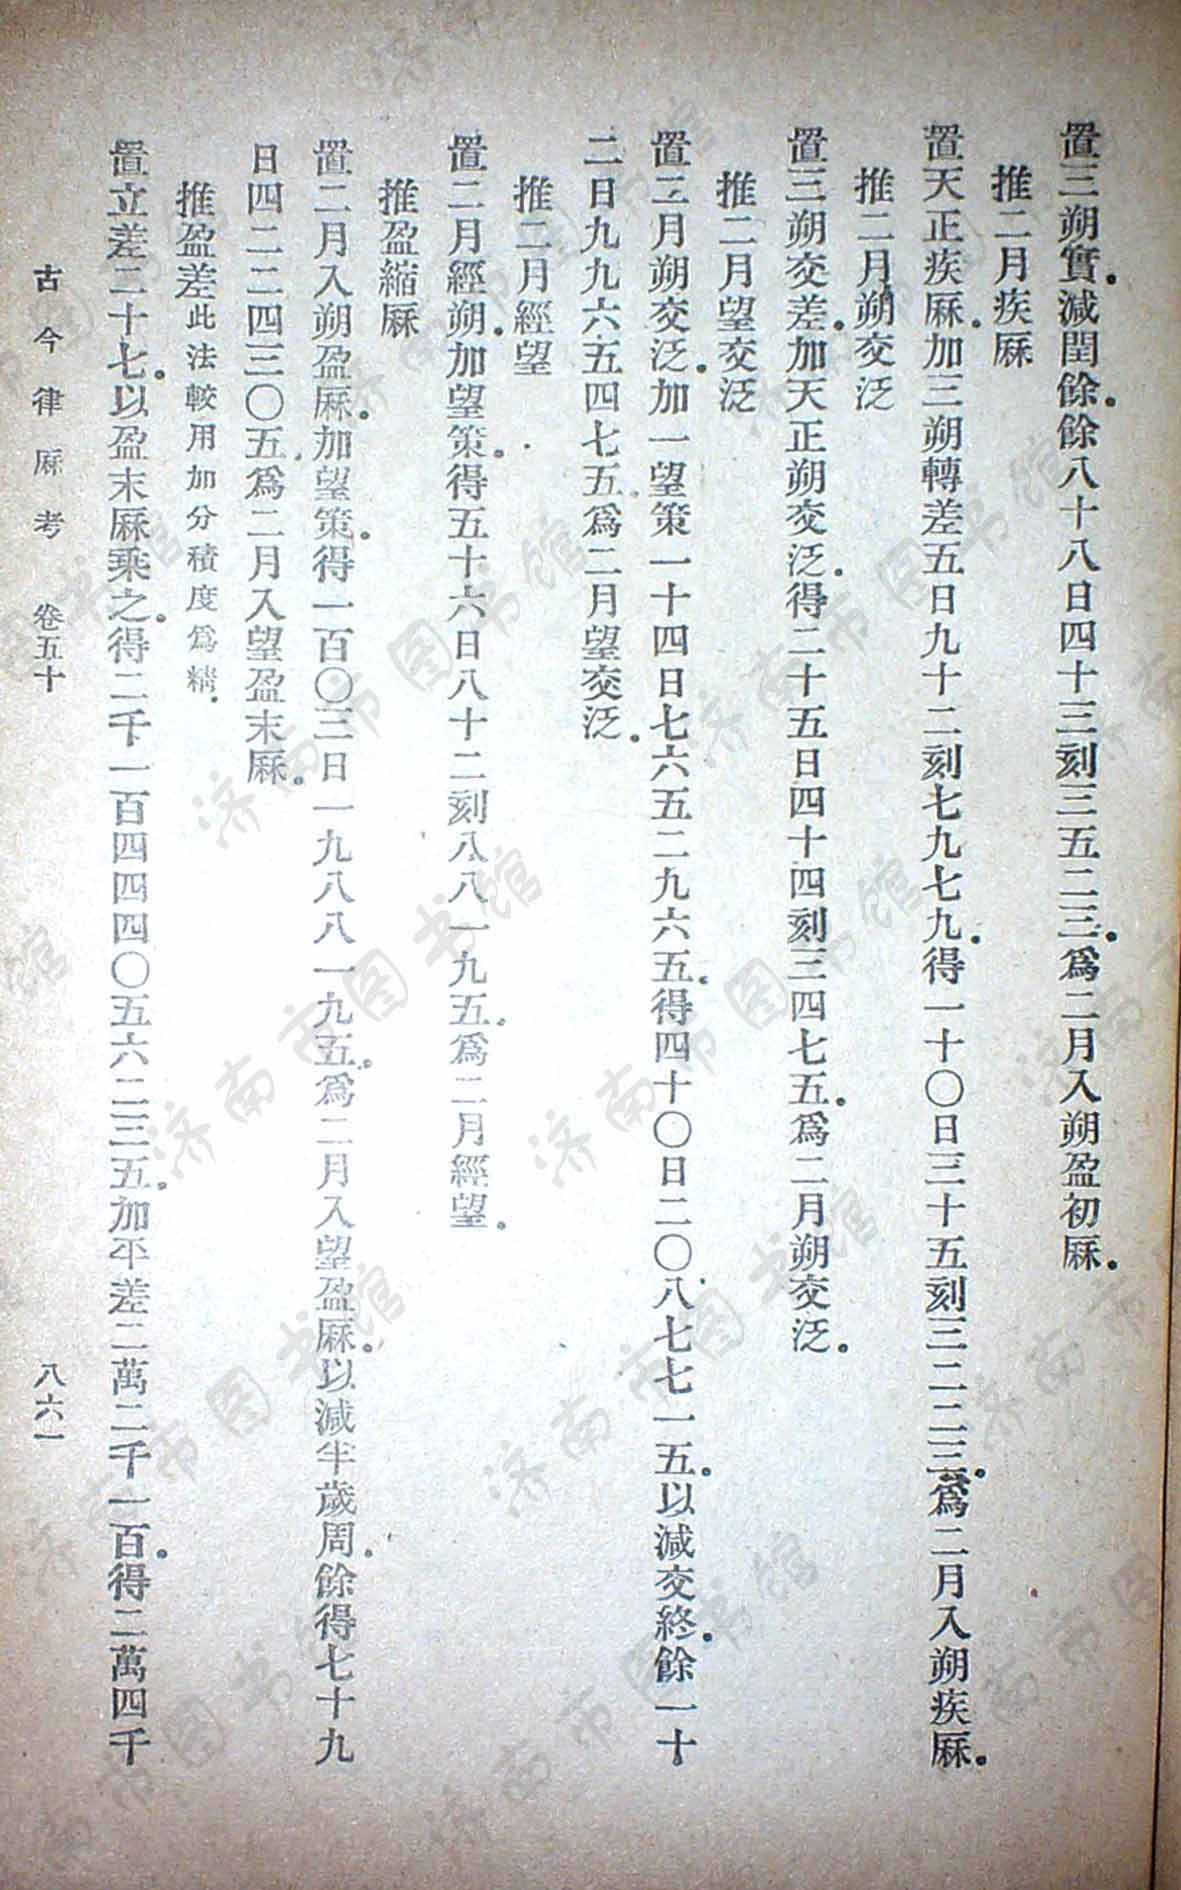 置三朔實。減閏餘。餘八十八日四十三刻三五二三。爲二月入朔盈初厤。
推二月疾厤
置天正疾厤。加三朔轉差五日九十二刻七九七九。得一十〇日三十五刻三二二三。爲二月入朔疾厤。
推二月朔交泛
置三朔交差。加天正朔交泛。得二十五日四十四刻三四七五。爲二月朔交泛。
推二月望交泛
置二月朔交泛。加一望策一十四日七六五二九六五。得四十〇日二〇八七七一五。以減交終。餘一十
二日九九六五四七五爲二月望交泛。
推二月經望
置二月經朔。加望策。得五十六日八十二刻八八一九五。爲二月經望。
推盈縮厤
置二月入朔盈厤。加望策。得一百〇三日一九八八一九五。爲二月入望盈厤。以減半歲周。餘得七十九
日四二二四三〇五。爲二月入望盈末厤。
推盈差此法較用加分積度爲精。
置立差二十七。以盈末厤乘之。得二千一百四四四〇五六二三五。加平差二萬二千一百。得二萬四千
古今律厤考 卷五十 八六一
济南市图书馆